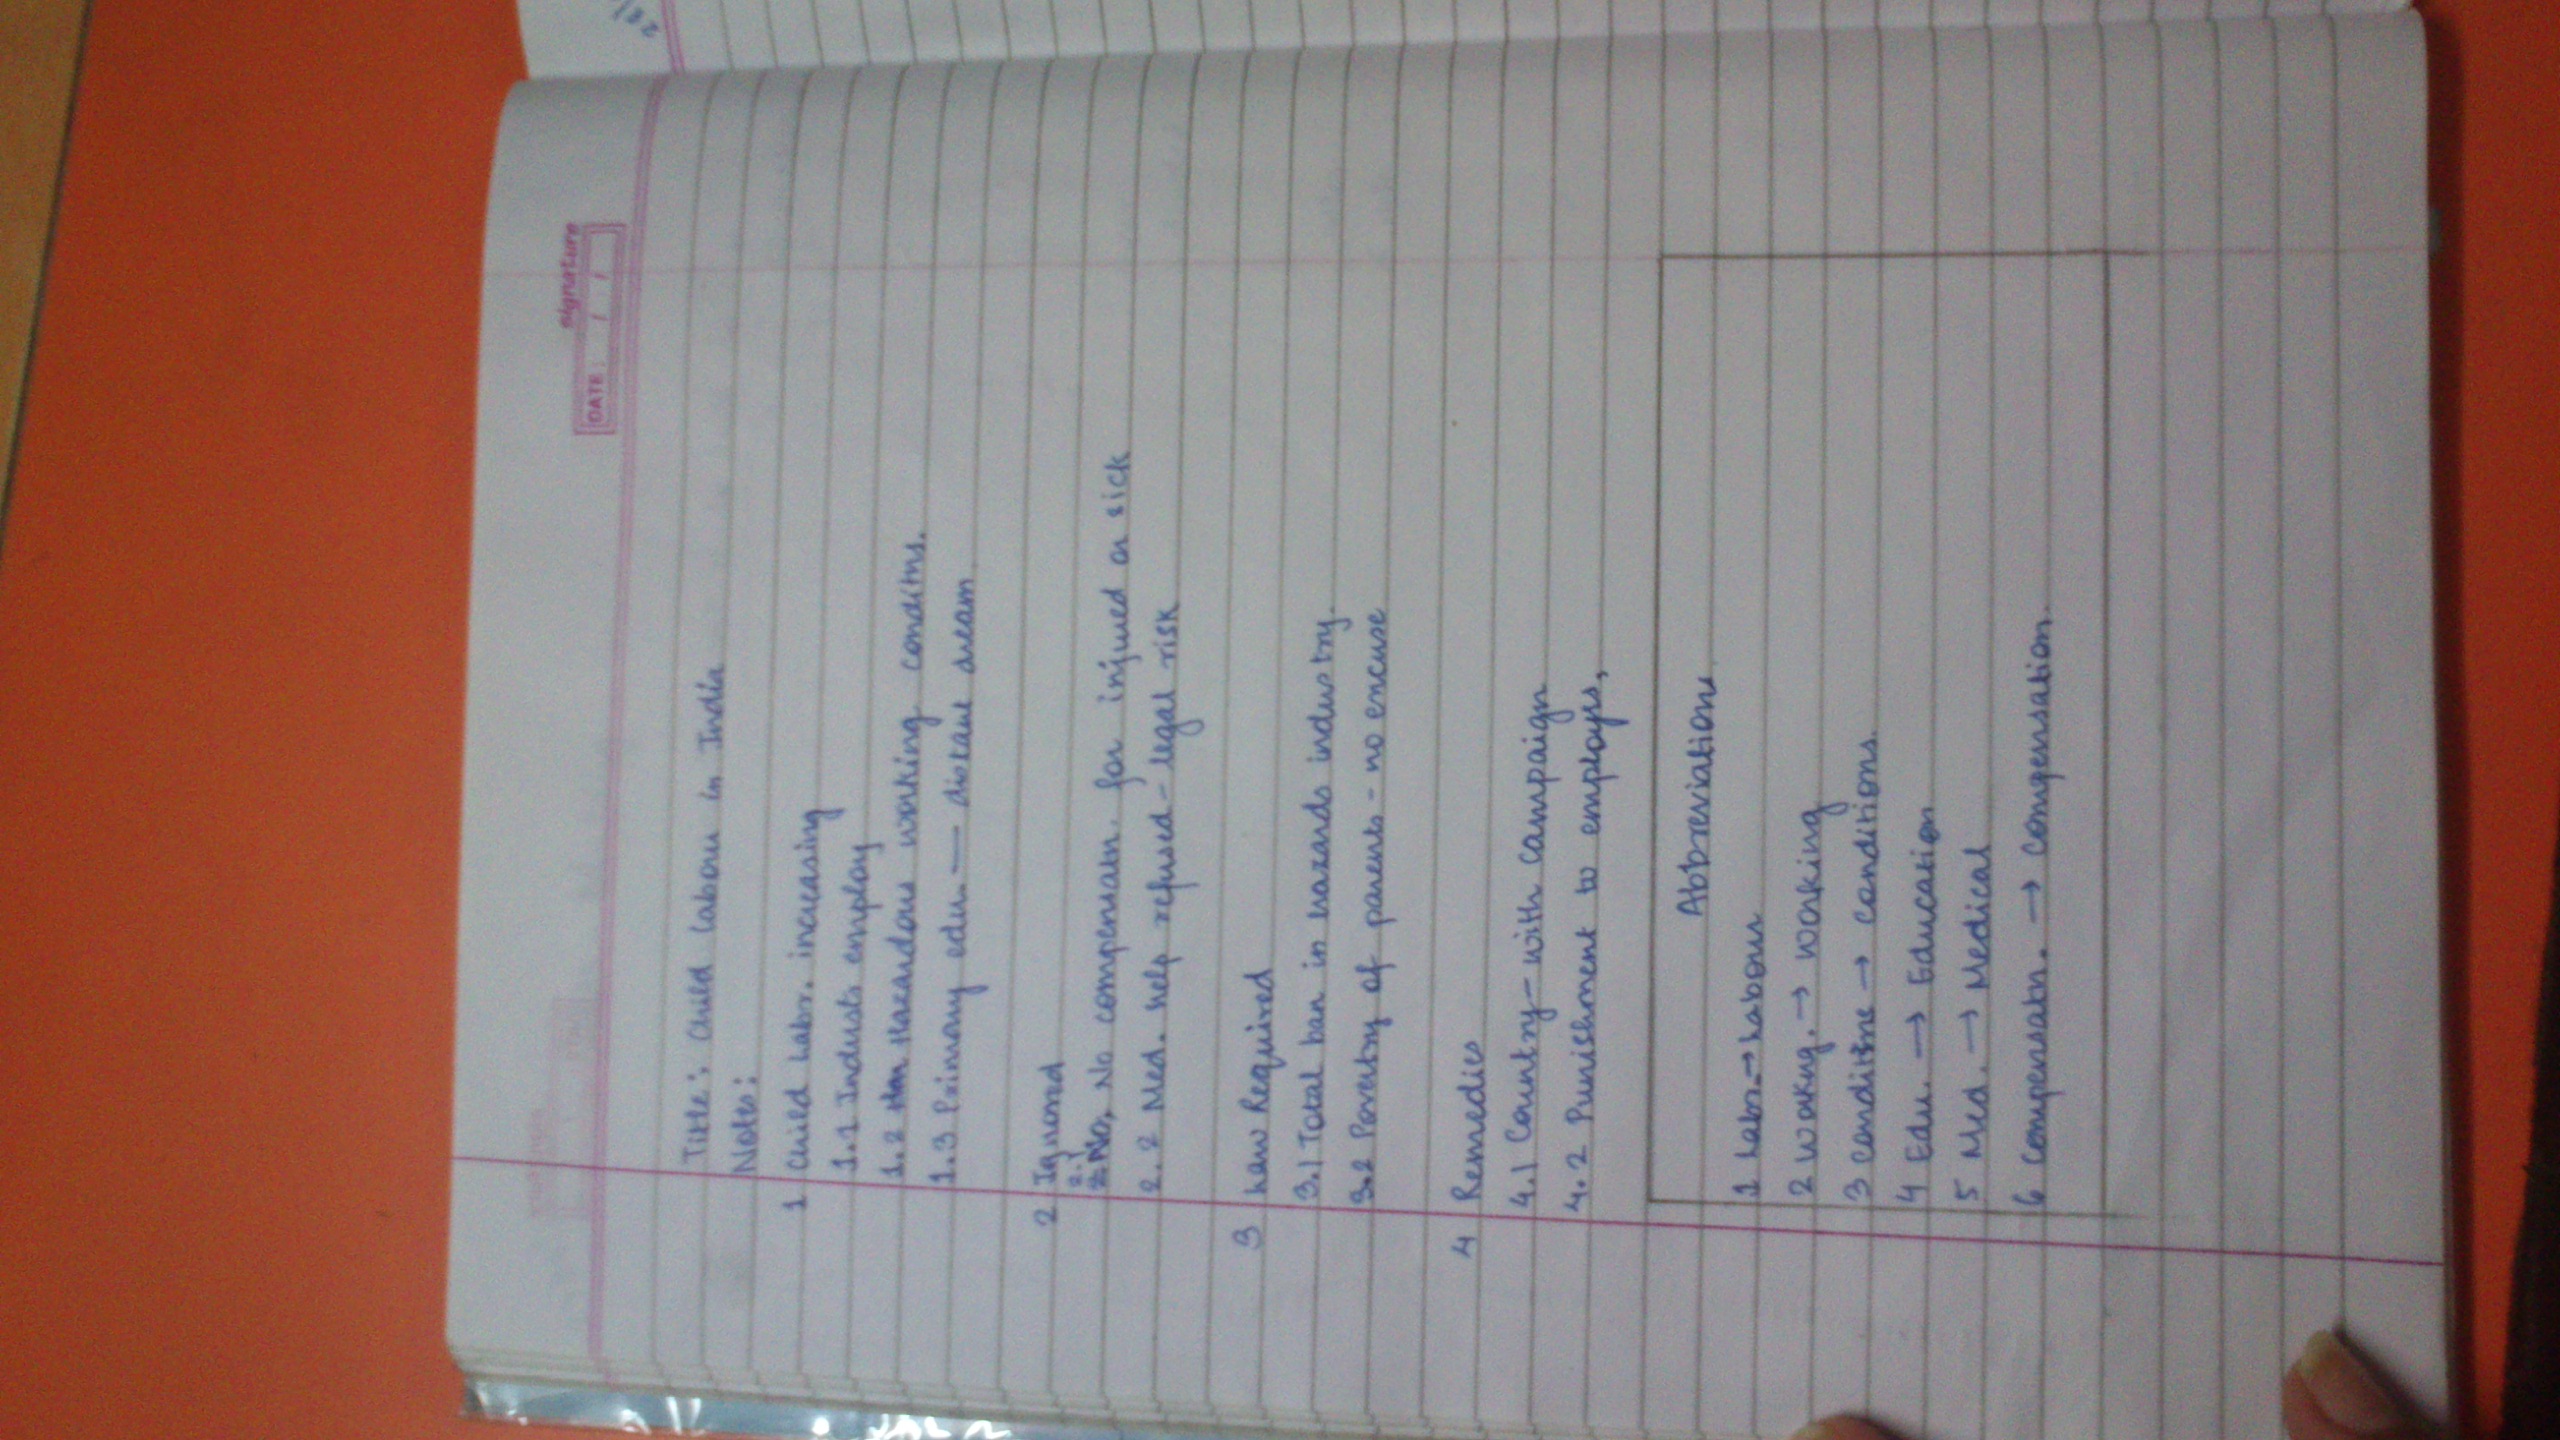 signature
DATE / /
Title: Child Labour in India
Notes:
1 Child Labr. increasing
1.1 Industs employ
1.2 Hazardous working conditns.
1.3 Primary edu. — distant dream
2 Ignored
2.1 No compensatn. for injured or sick
2.2 Med. help refused - legal risk
3 Law Required
3.1 Total ban in hazards industry.
3.2 Povertry of parents - no excuse
4 Remedies
4.1 Country - with campaign
4.2 Punishment to employrs.
Abbreviations
1 Labr. → Labour
2 Workng. → working
3 conditns → conditions.
4 Edu. → Education
5 Med. → Medical
6 Compensatn. → Compensation.
28/